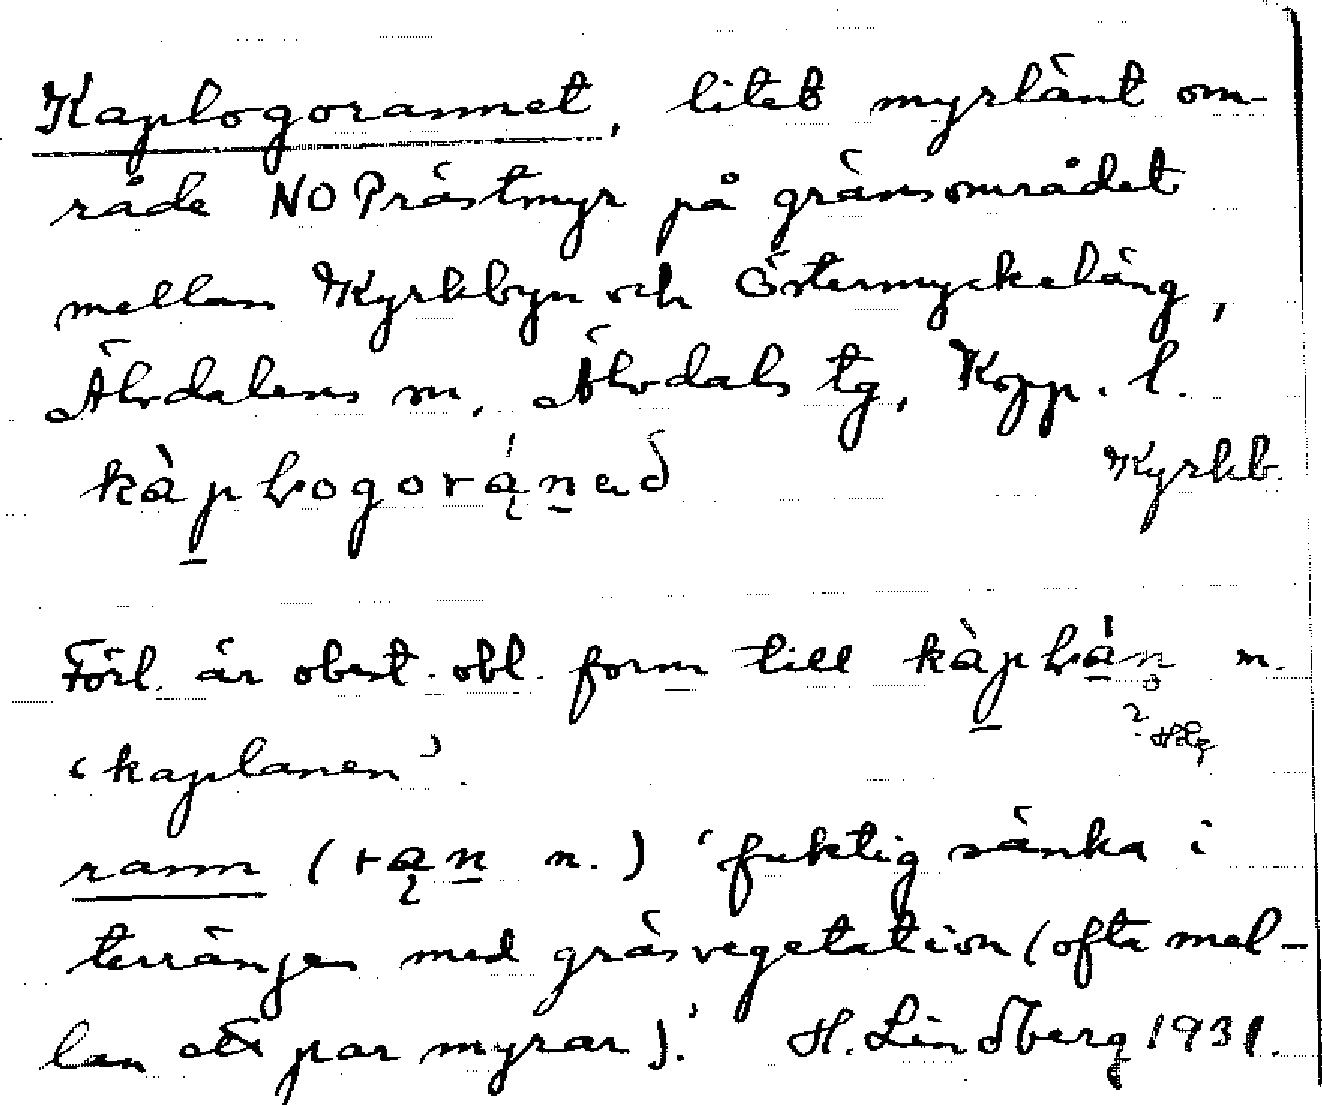 Kaplogorannet, litet myrlänt om-
råde NO Prästmyr på gränsområdet
mellan Kyrkbyn och Östermyckeläng,
Älvdalens sn, Älvdals tg, Kopp. l.
Kyrkb.
Förl. är obest. obl. form till
‘kaplanen’.
rann (rąn n.) ‘fuktig sänka i
terrängen med gräsvegetation (ofta mel-
lan ett par myrar).’ H. Lindberg 1931.